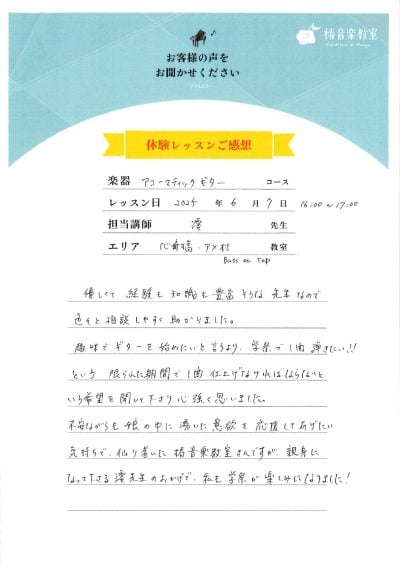 椿音楽教室
お客様の声を
お聞かせください
VOICE
体験レッスンご感想
楽器 アコースティックギター コース
レッスン日 2025年 6月 7日 16:00〜17:00
担当講師 澪 先生
エリア 心斎橋・アメ村 教室
Bass on Top
優しくて 経験も知識も豊富そうな先生なので
色々と相談しやすく助かりました。
趣味でギターを始めたいと言うより、学祭で1曲弾きたい!!
という 限られた期間で1曲仕上げなければならないと
いう希望を聞いて下さり心強く思いました。
不安ながらも娘の中に湧いた意欲を応援してあげたい
気持ちで、辿り着いた椿音楽教室さんですが、親身に
なって下さる澪先生のおかげで、私も学祭が楽しみになりました!